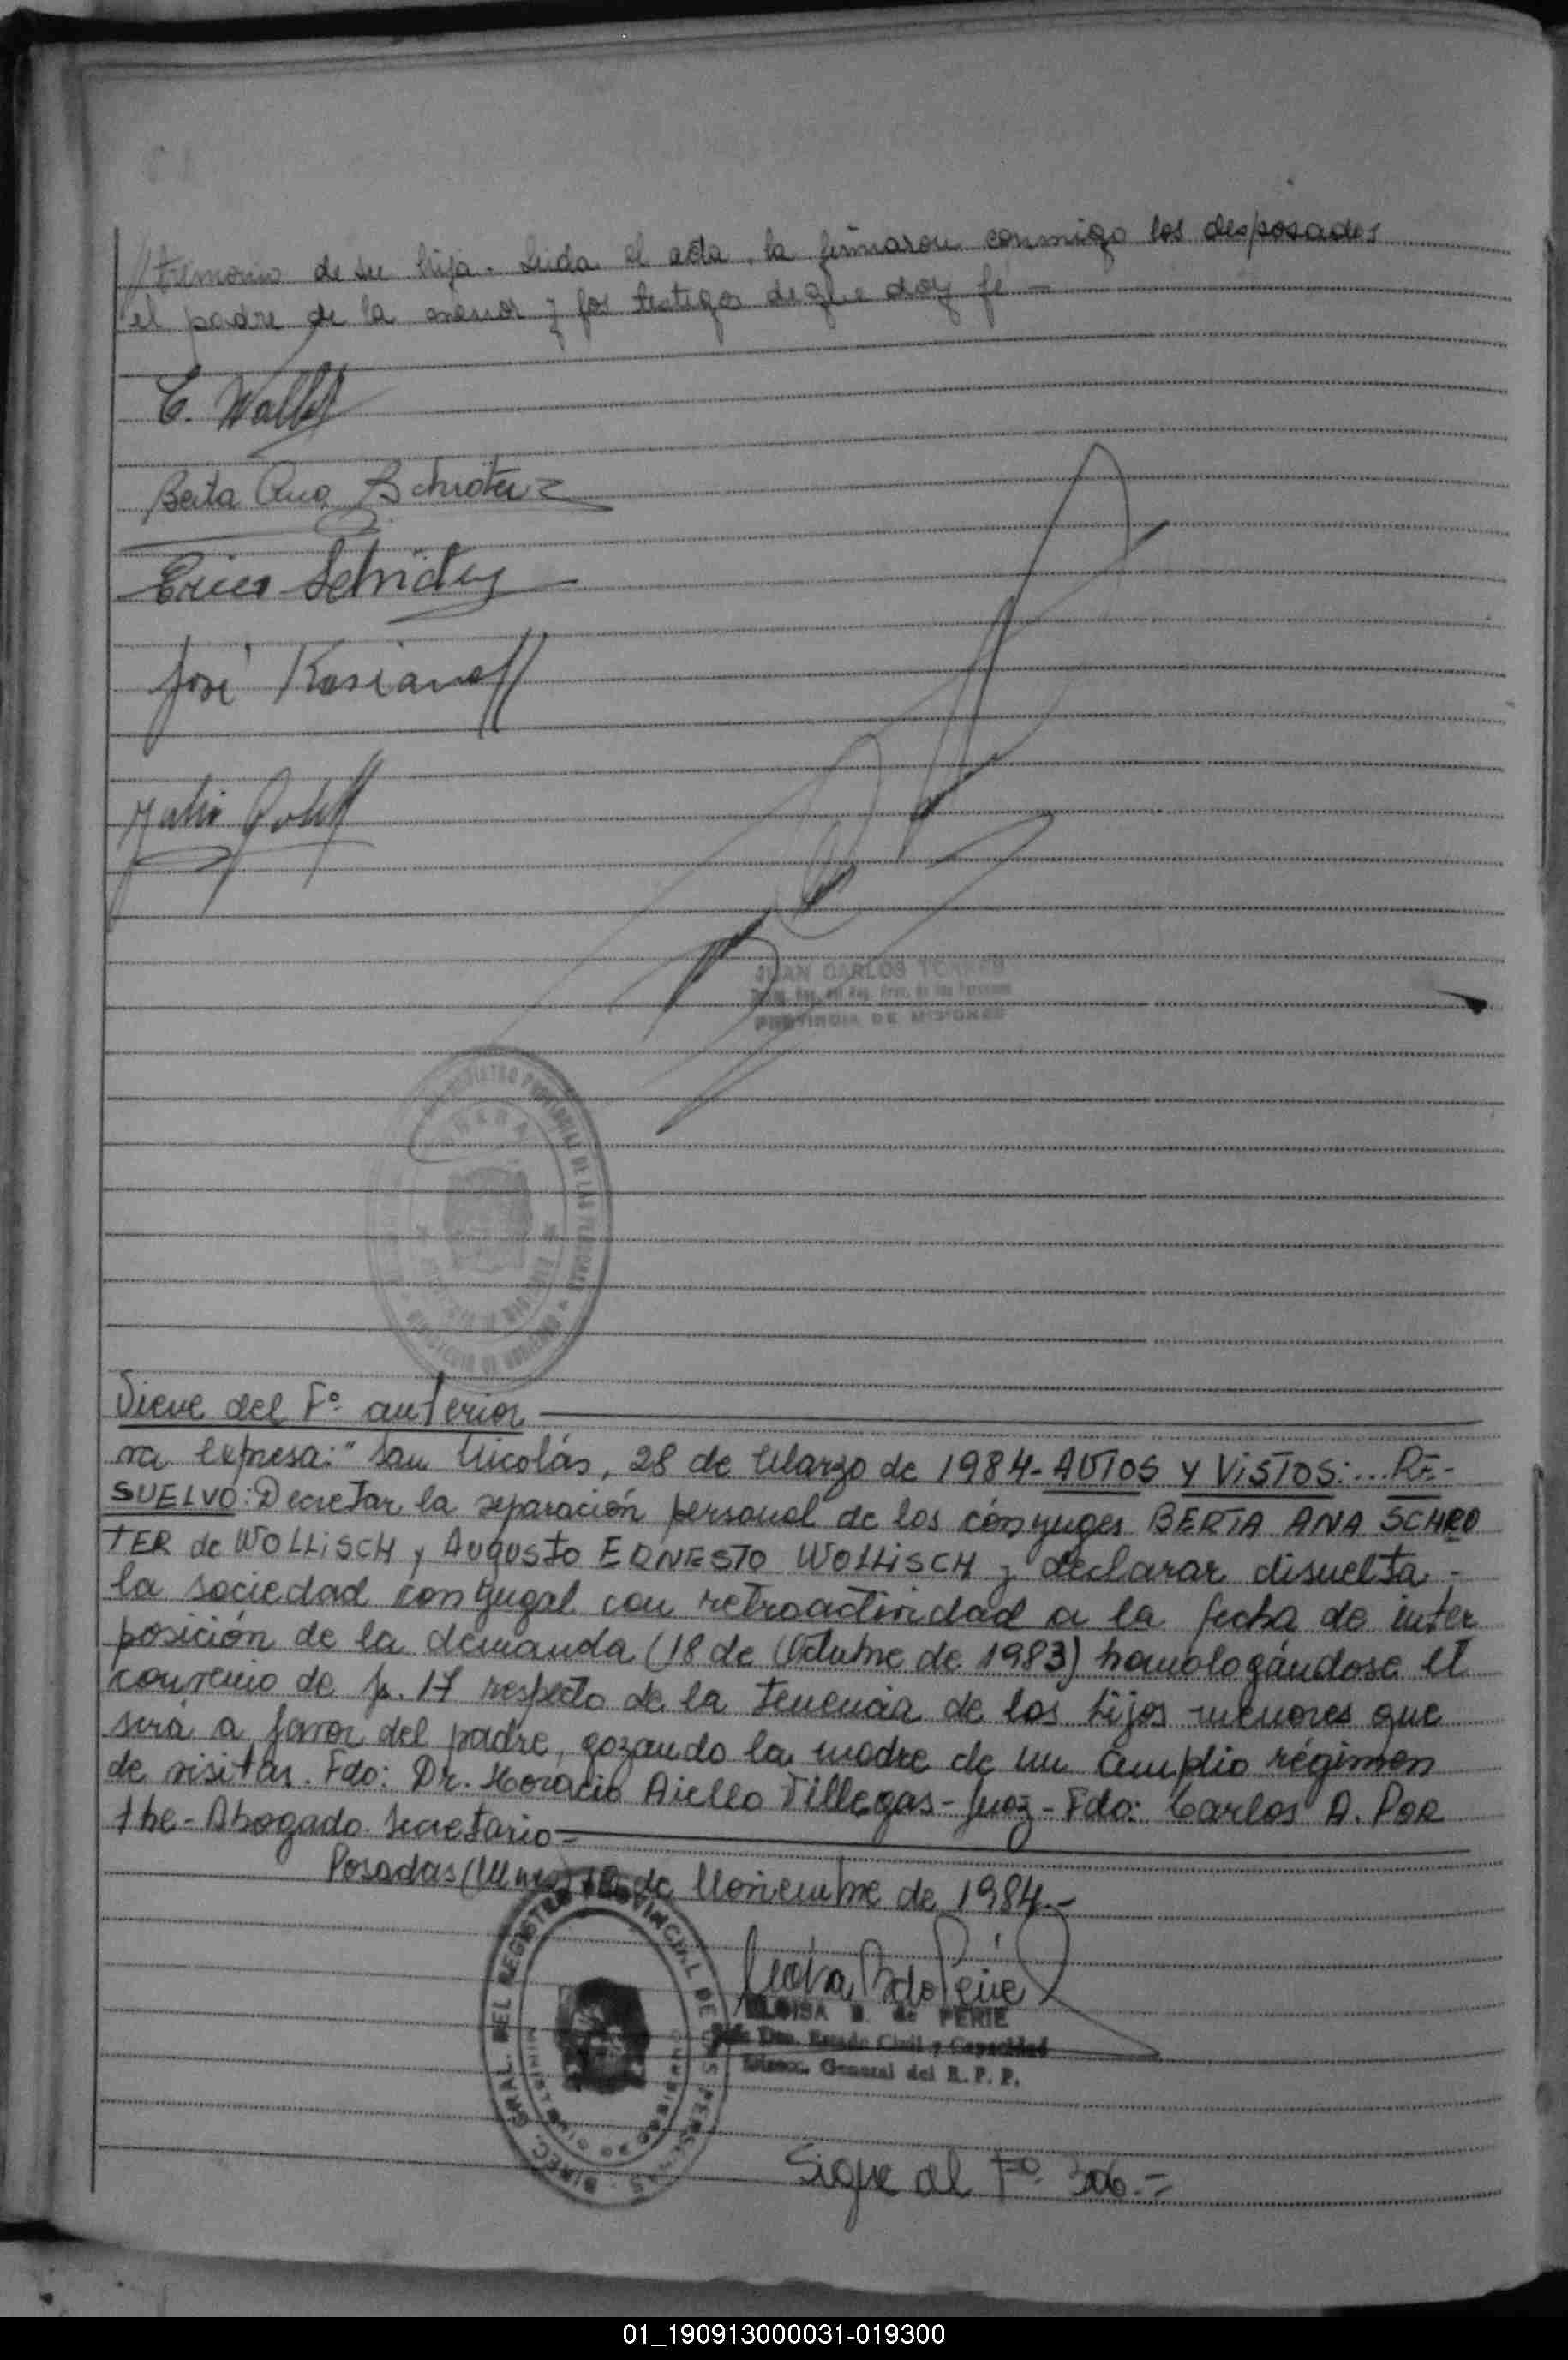 //trimonio de su hija. Leida el acta, la firmaron conmigo los desposados
el padre de la menor y los testigos de que doy fé -
E. Wollis
Berta Ana Schroter
Erico
José Kasianoff
Julio
JUAN CARLOS TORRES
PROVINCIA DE MISIONES
Viene del Fº anterior
ra expresa: "San Nicolás, 28 de Marzo de 1984- AUTOS Y VISTOS:... RE-
SUELVO: Decretar la separación personal de los cónyuges BERTA ANA SCHRO
TER de WOLLISCH y AUGUSTO ERNESTO WOLLISCH y declarar disuelta -
la sociedad conyugal con retroactividad a la fecha de inter
posición de la demanda (18 de Octubre de 1983) homologándose el
convenio de fs. 17 respecto de la tenencia de los hijos menores que
será a favor del padre, gozando la madre de un amplio régimen
de visitas. Fdo: Dr. Horacio Aiello Villegas - Juez - Fdo: Carlos A. POR
the - Abogado Secretario -
Posadas (Mnes) de Noviembre de 1984.-
DIREC. GRAL. DEL REGISTRO PROVINCIAL DE LAS PERSONAS
MINISTERIO DE GOBIERNO
ELOISA B. de PERIE
Dto. Estado Civil y Capacidad
Direcc. General del R. P. P.
Sigue al Fº 306.=
01_190913000031-019300